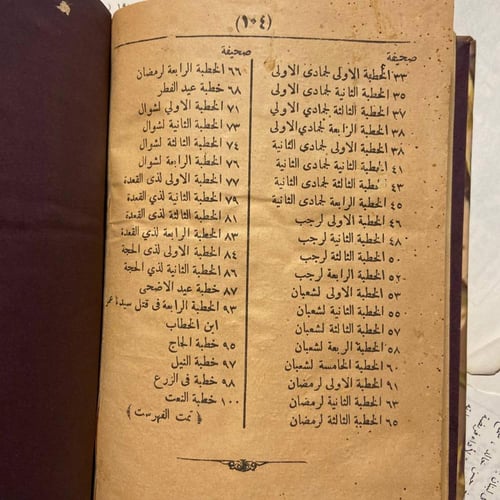 (١٠٤)
صحيفة
٣٣ الخطبة الاولى لجمادى الاولى
٣٥ الخطبة الثانية لجمادى الاولى
٣٧ الخطبة الثالثة لجمادي الاولي
٣٨ الخطبة الرابعة لجمادي الاولى
٣٨ الخطبة الاولى لجمادى الثانية
٤١ الخطبة الثانية لجمادى الثانية
٤٣ الخطبة الثالثة لجمادى الثانية
٤٥ الخطبة الرابعة لجمادى الثانية
٤٦ الخطبة الاولى لرجب
٤٨ الخطبة الثانية لرجب
٥٠ الخطبة الثالثة لرجب
٥٢ الخطبة الرابعة لرجب
٥٣ الخطبة الاولى لشعبان
٥٥ الخطبة الثانية لشعبان
٥٧ الخطبة الثالثة لشعبان
٥٨ الخطبة الربعة لشعبان
٦٠ الخطبة الخامسة لشعبان
٩١ الخطبة الاولى لرمضان
٦٣ الخطبة الثانية لرمضان
٦٥ الخطبة الثالثة لرمضان
صحيفة
٦٦ الخطبة الرابعة لرمضان
٦٨ خطبة عيد الفطر
٧١ الخطبة الاولي لشوال
٧٣ الخطبة الثانية لشوال
٧٤ الخطبة الثالثة لشوال
٧٦ الخطبة الرابعة لشوال
٧٧ الخطبة الاولى لذى القعدة
٧٩ الخطبة الثانية لذي القعدة
٨١ الخطبة الثالثة لذى القعدة
٨٣ الخطبة الرابعة لذي القعدة
٨٤ الخطبة الاولى لذى الحجة
٨٦ الخطبة الثانية لذي الحجة
٨٧ خطبة عيد الاضحى
٩٣ الخطبة الرابعة فى قتل سيدنا عمر
ابن الخطاب
٩٥ خطبة الحاج
٩٧ خطبة النيل
٩٨ خطبة فى الزرع
١٠٠ خطبة النعت
﴿ تمت الفهرست ﴾